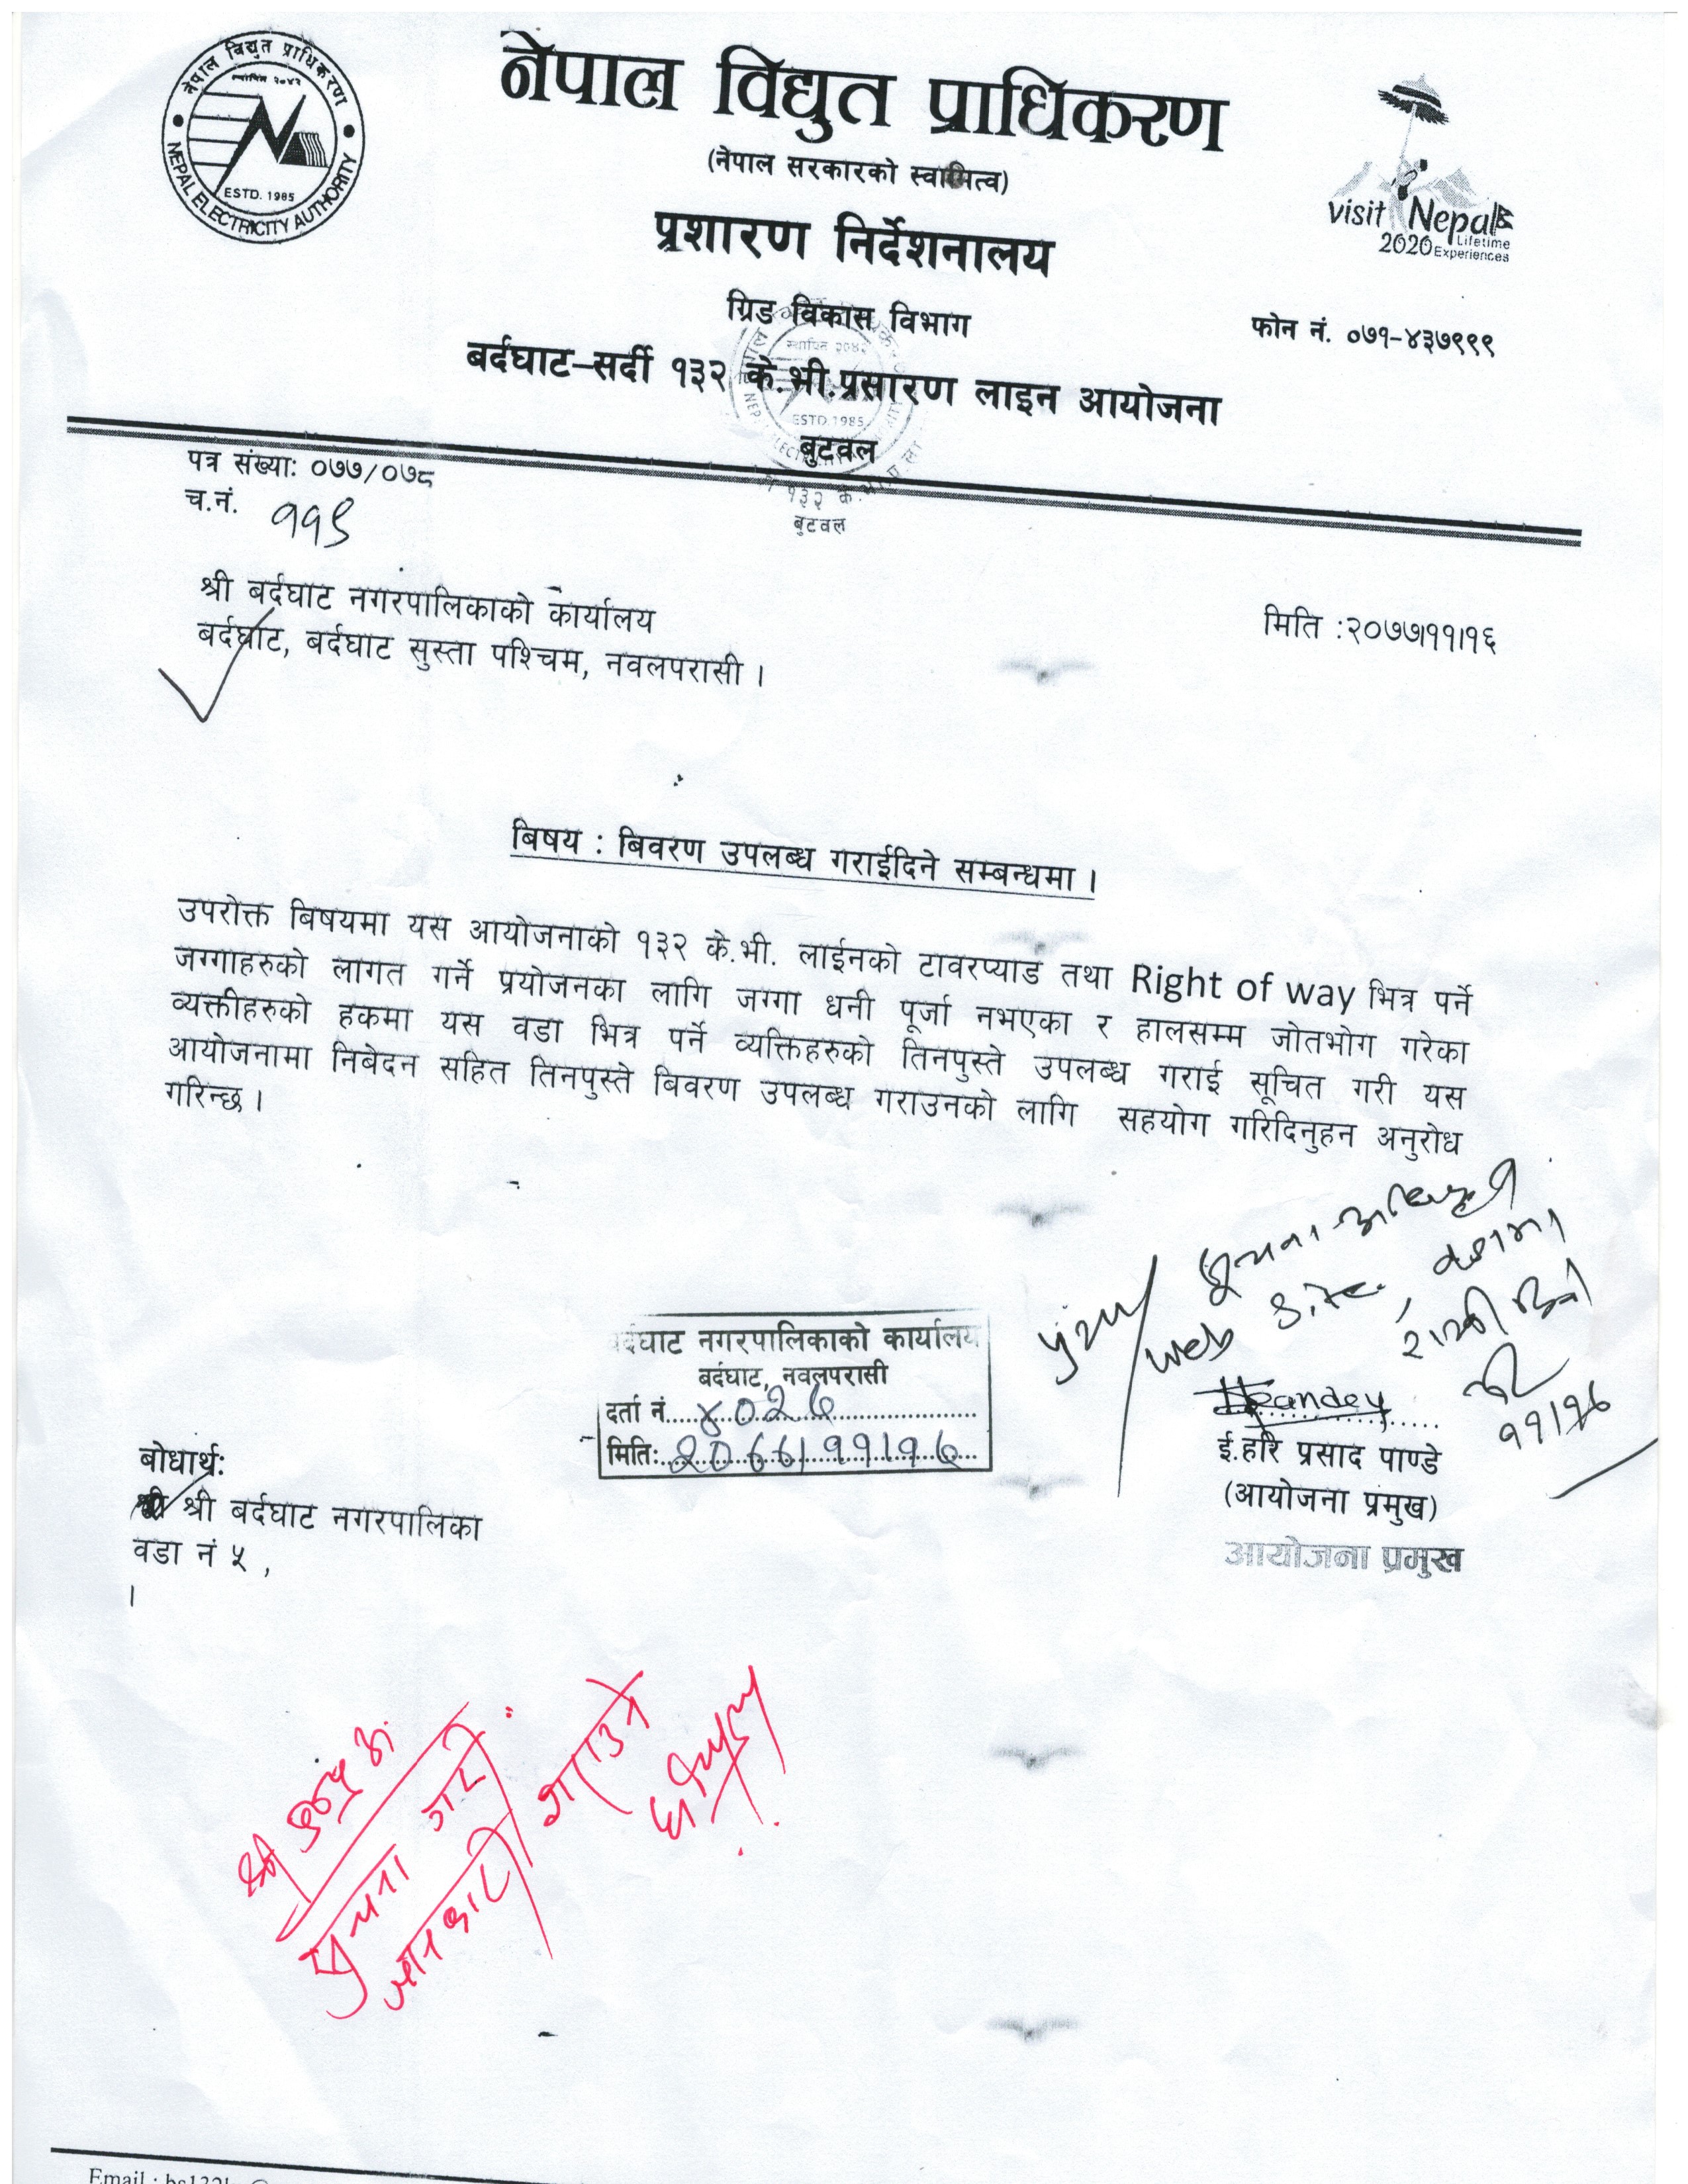 नेपाल विद्युत प्राधिकरण
स्थापित २०४२
NEPAL ELECTRICITY AUTHORITY
ESTD. 1985
नेपाल विद्युत प्राधिकरण
(नेपाल सरकारको स्वामित्व)
प्रशारण निर्देशनालय
visit Nepal
2020 Lifetime
Experiences
ग्रिड विकास विभाग
फोन नं. ०७१-४३७९९९
बर्दघाट–सर्दी १३२ के.भी.प्रसारण लाइन आयोजना
बुटवल
स्थापित २०४२
ESTD.1985
१३२ के.
बुटवल
पत्र संख्या: ०७७/०७८
च.नं. ११९
श्री बर्दघाट नगरपालिकाको कार्यालय
बर्दघाट, बर्दघाट सुस्ता पश्चिम, नवलपरासी ।
मिति :२०७७।११।१६
बिषय : बिवरण उपलब्ध गराईदिने सम्बन्धमा ।
उपरोक्त बिषयमा यस आयोजनाको १३२ के.भी. लाईनको टावरप्याड तथा Right of way भित्र पर्ने
जग्गाहरुको लागत गर्ने प्रयोजनका लागि जग्गा धनी पूर्जा नभएका र हालसम्म जोतभोग गरेका
व्यक्तीहरुको हकमा यस वडा भित्र पर्ने व्यक्तिहरुको तिनपुस्ते उपलब्ध गराई सूचित गरी यस
आयोजनामा निबेदन सहित तिनपुस्ते बिवरण उपलब्ध गराउनको लागि सहयोग गरिदिनुहन अनुरोध
गरिन्छ ।
सूचना
web site,
११।१६
बर्दघाट नगरपालिकाको कार्यालय
बर्दघाट, नवलपरासी
दर्ता नं. ४०२६
मिति: २०७७।११।१६
Pandey
ई.हरि प्रसाद पाण्डे
(आयोजना प्रमुख)
आयोजना प्रमुख
बोधार्थ:
श्री बर्दघाट नगरपालिका
वडा नं ५ ,
।
सुचना गरी
जानकारी गराउने
Email :